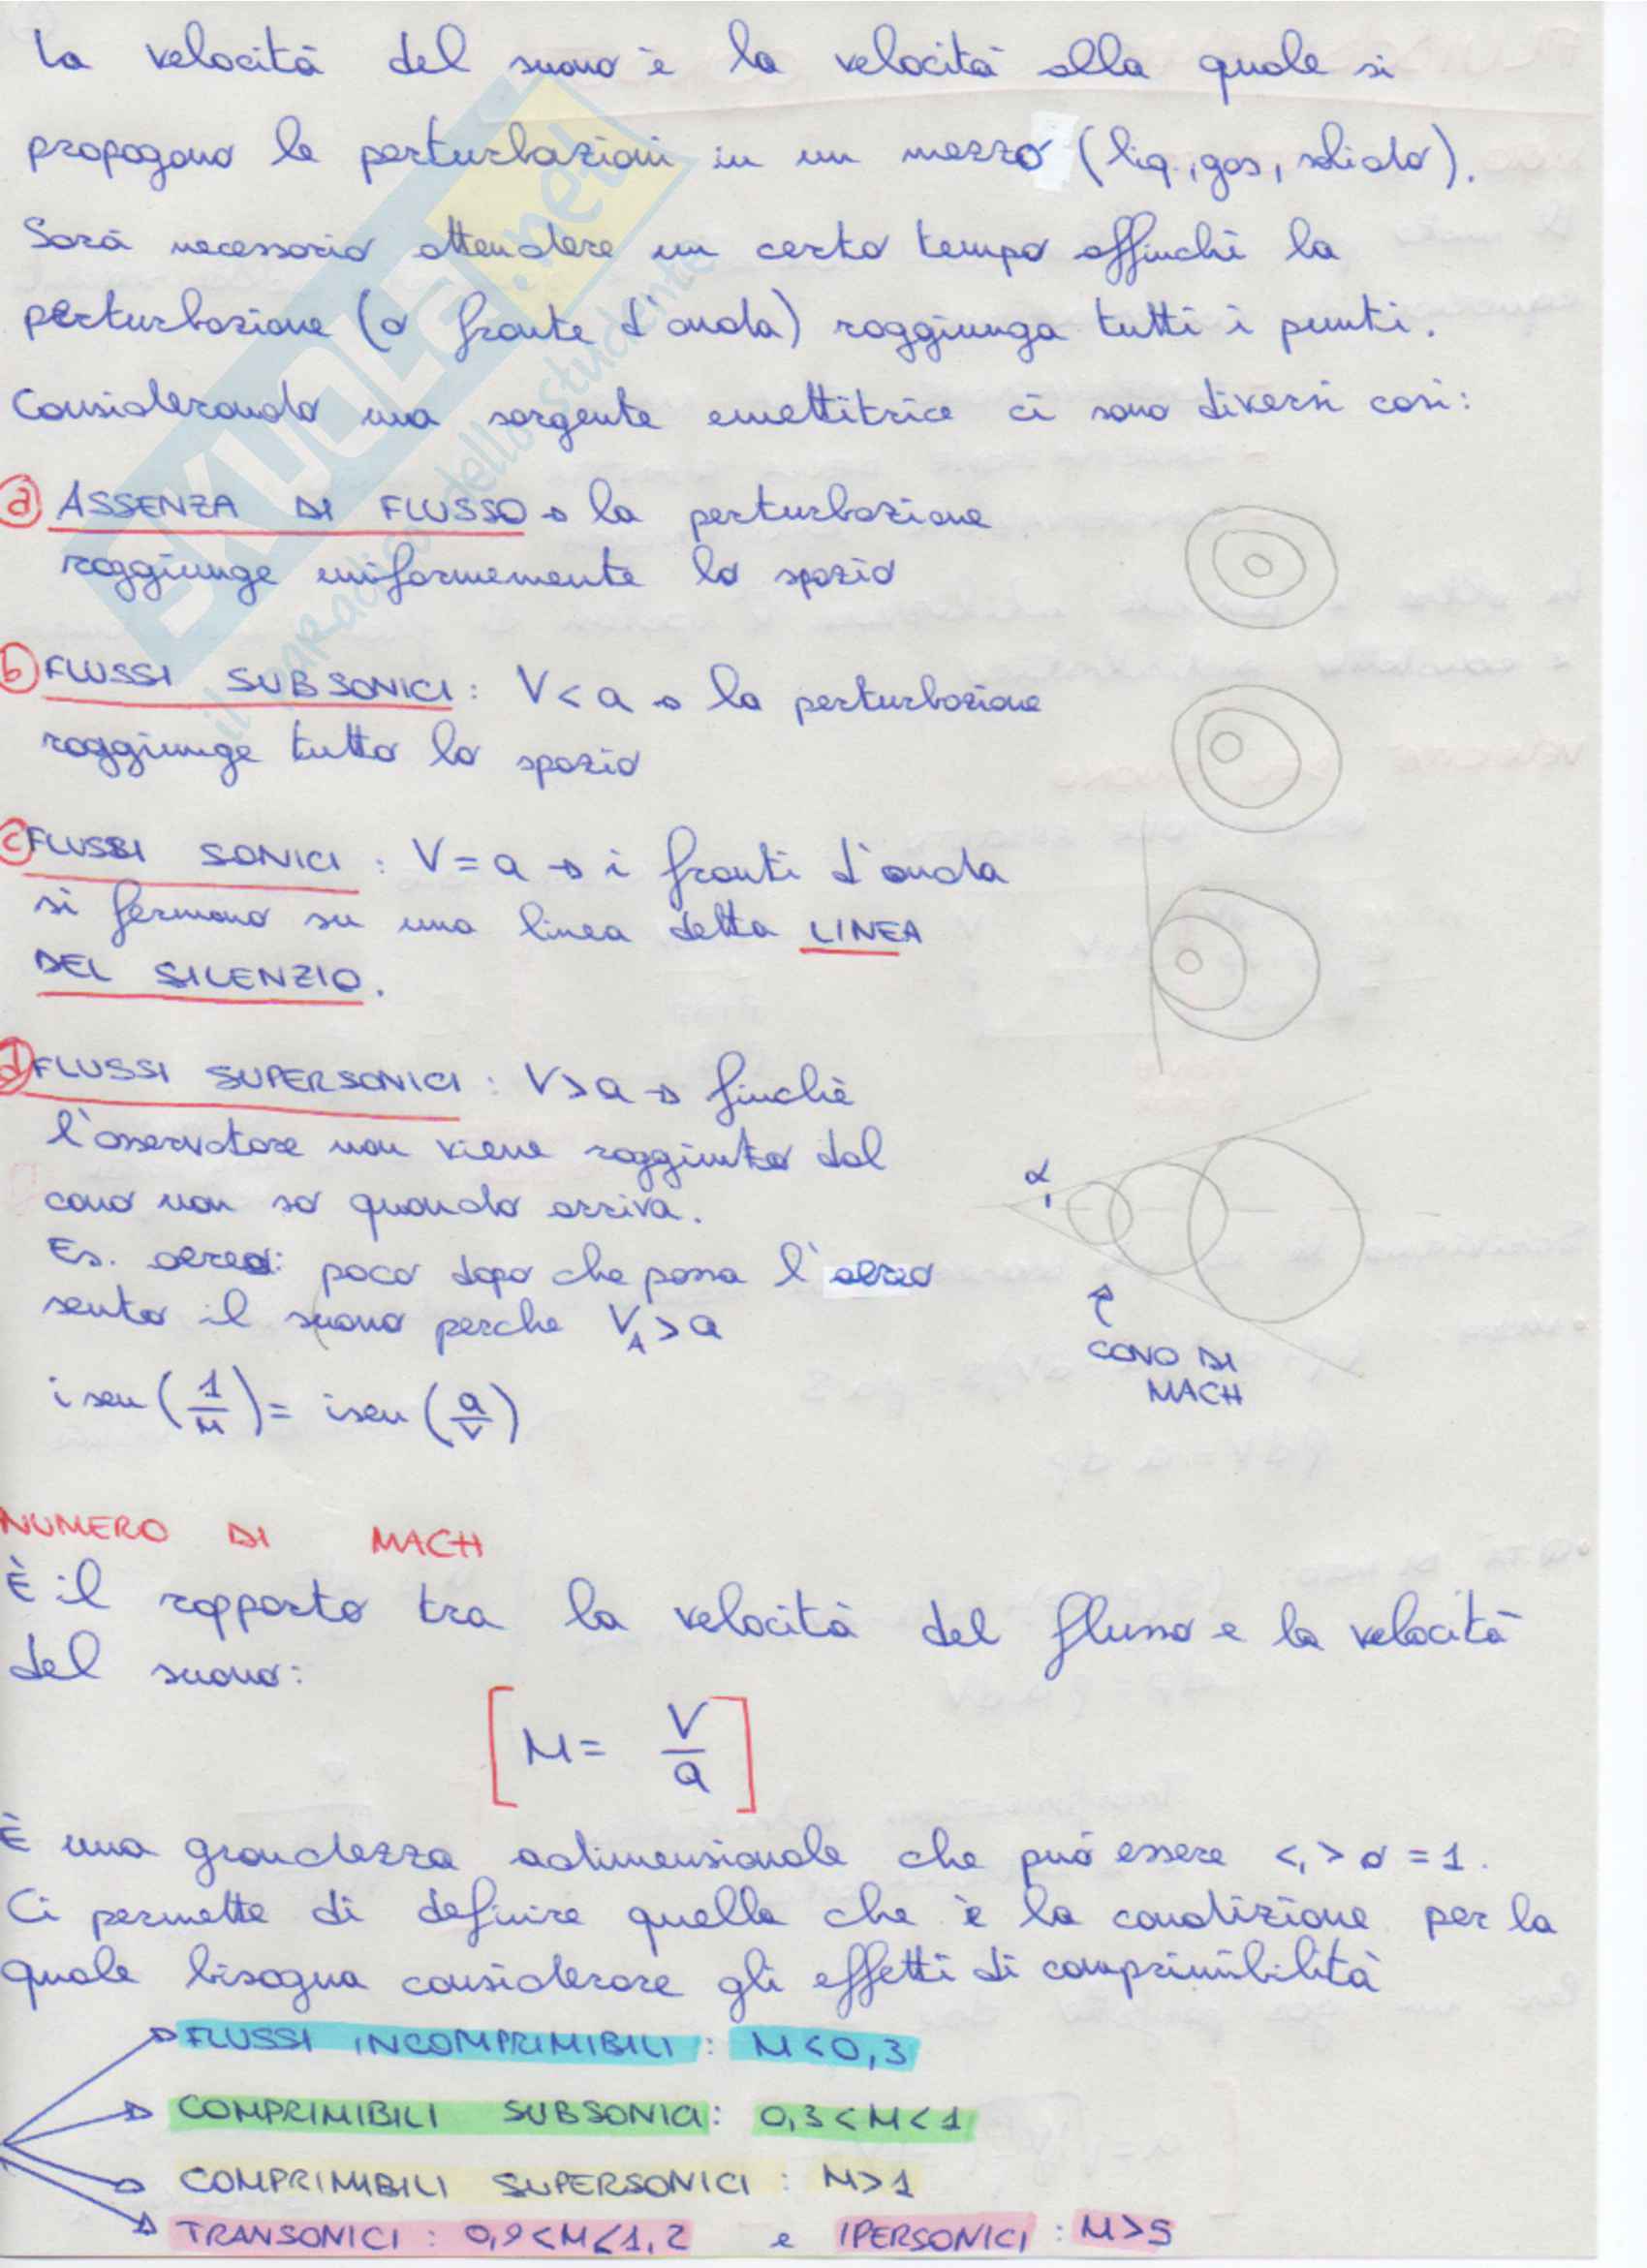 La velocità del suono è la velocità alla quale si
propagano le perturbazioni in un mezzo (liq., gas, solido).
Sarà necessario attendere un certo tempo affinchè la
perturbazione (o fronte d'onda) raggiunga tutti i punti.
Considerando una sorgente emettitrice ci sono diversi casi:
a) ASSENZA DI FLUSSO → la perturbazione
raggiunge uniformemente lo spazio
b) FLUSSI SUBSONICI: V<a → la perturbazione
raggiunge tutto lo spazio
c) FLUSSI SONICI: V=a → i fronti d'onda
si fermano su una linea detta LINEA
DEL SILENZIO.
d) FLUSSI SUPERSONICI: V>a → finchè
l'osservatore non viene raggiunto dal
cono non so quando arriva.
Es. aereo: poco dopo che passa l'aereo
sento il suono perche V_A>a
isen(1/M)= isen(a/V)
α
CONO DI
MACH
NUMERO DI MACH
È il rapporto tra la velocità del flusso e la velocità
del suono:
[M= V/a]
È una grandezza adimensionale che può essere <,> o =1.
Ci permette di definire quella che è la condizione per la
quale bisogna considerare gli effetti di comprimibilità
FLUSSI INCOMPRIMIBILI: M<0,3
COMPRIMIBILI SUBSONICI: 0,3<M<1
COMPRIMIBILI SUPERSONICI: M>1
TRANSONICI: 0,9<M<1,2 e IPERSONICI: M>5
SKUOLA.net
il paradiso dello studente